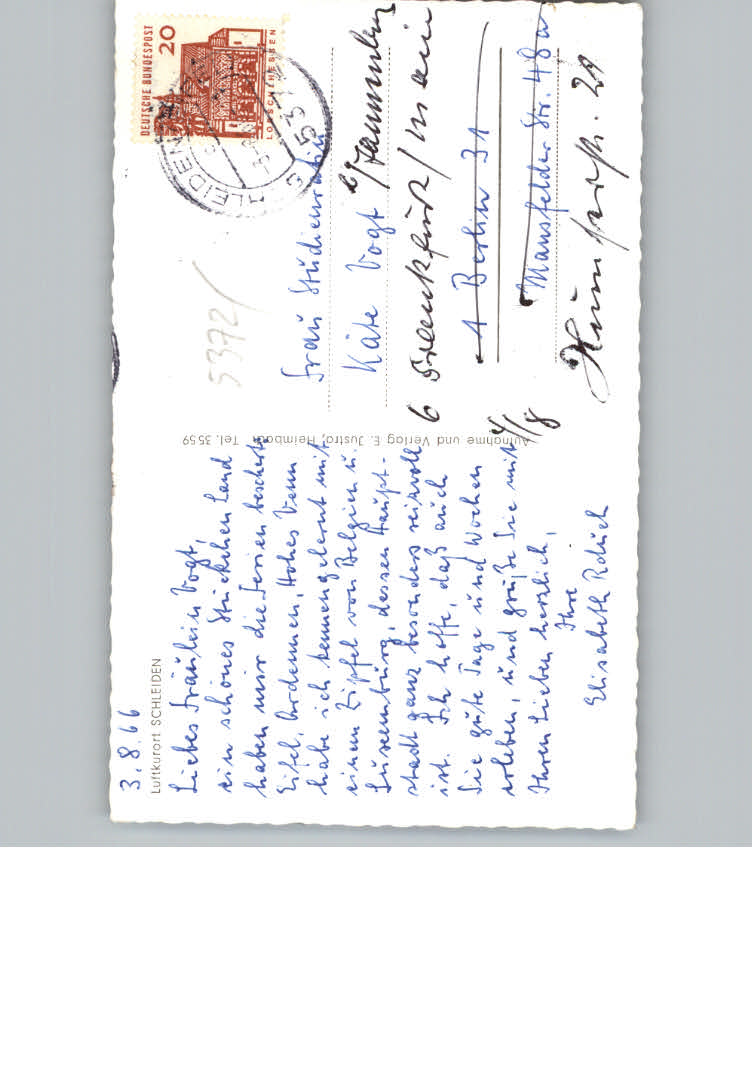 3.8.66
Luftkurort SCHLEIDEN
Liebes Fräulein Vogt,
ein schönes Stückchen Land
haben mir die Ferien beschert.
Eifel, Ardennen, Hohes Venn
habe ich kennengelernt mit
einem Zipfel von Belgien u.
Luxemburg, dessen Haupt-
stadt ganz besonders reizvoll
ist. Ich hoffe, daß auch
Sie gute Tage und Wochen
erleben, und grüße Sie mit
Ihren Lieben herzlich,
Ihre
Elisabeth
Aufnahme und Verlag E. Justra, Heimbach, Tel. 3559
DEUTSCHE BUNDESPOST
20
LORSCH/HESSEN
SCHLEIDEN
53
5372/
Frau Studienrätin
Käte Vogt
6 Frankfurt/Main
1 Berlin 31
Mansfelder Str. 48a
4/8